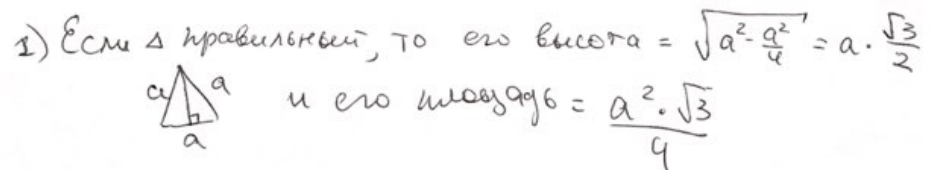 1) Если Δ правильный, то его высота = √(a² - a²/4) = a · √3/2
a a a
и его площадь = a² · √3 / 4